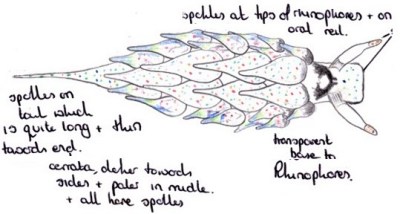 spottles at tips of rhinophores + on
oral veil.
spottles on
tail which
is quite long + thin
towards end.
cerrata, darker towards
sides + paler in middle.
+ all have spottles
transparent
base to
Rhinophores.